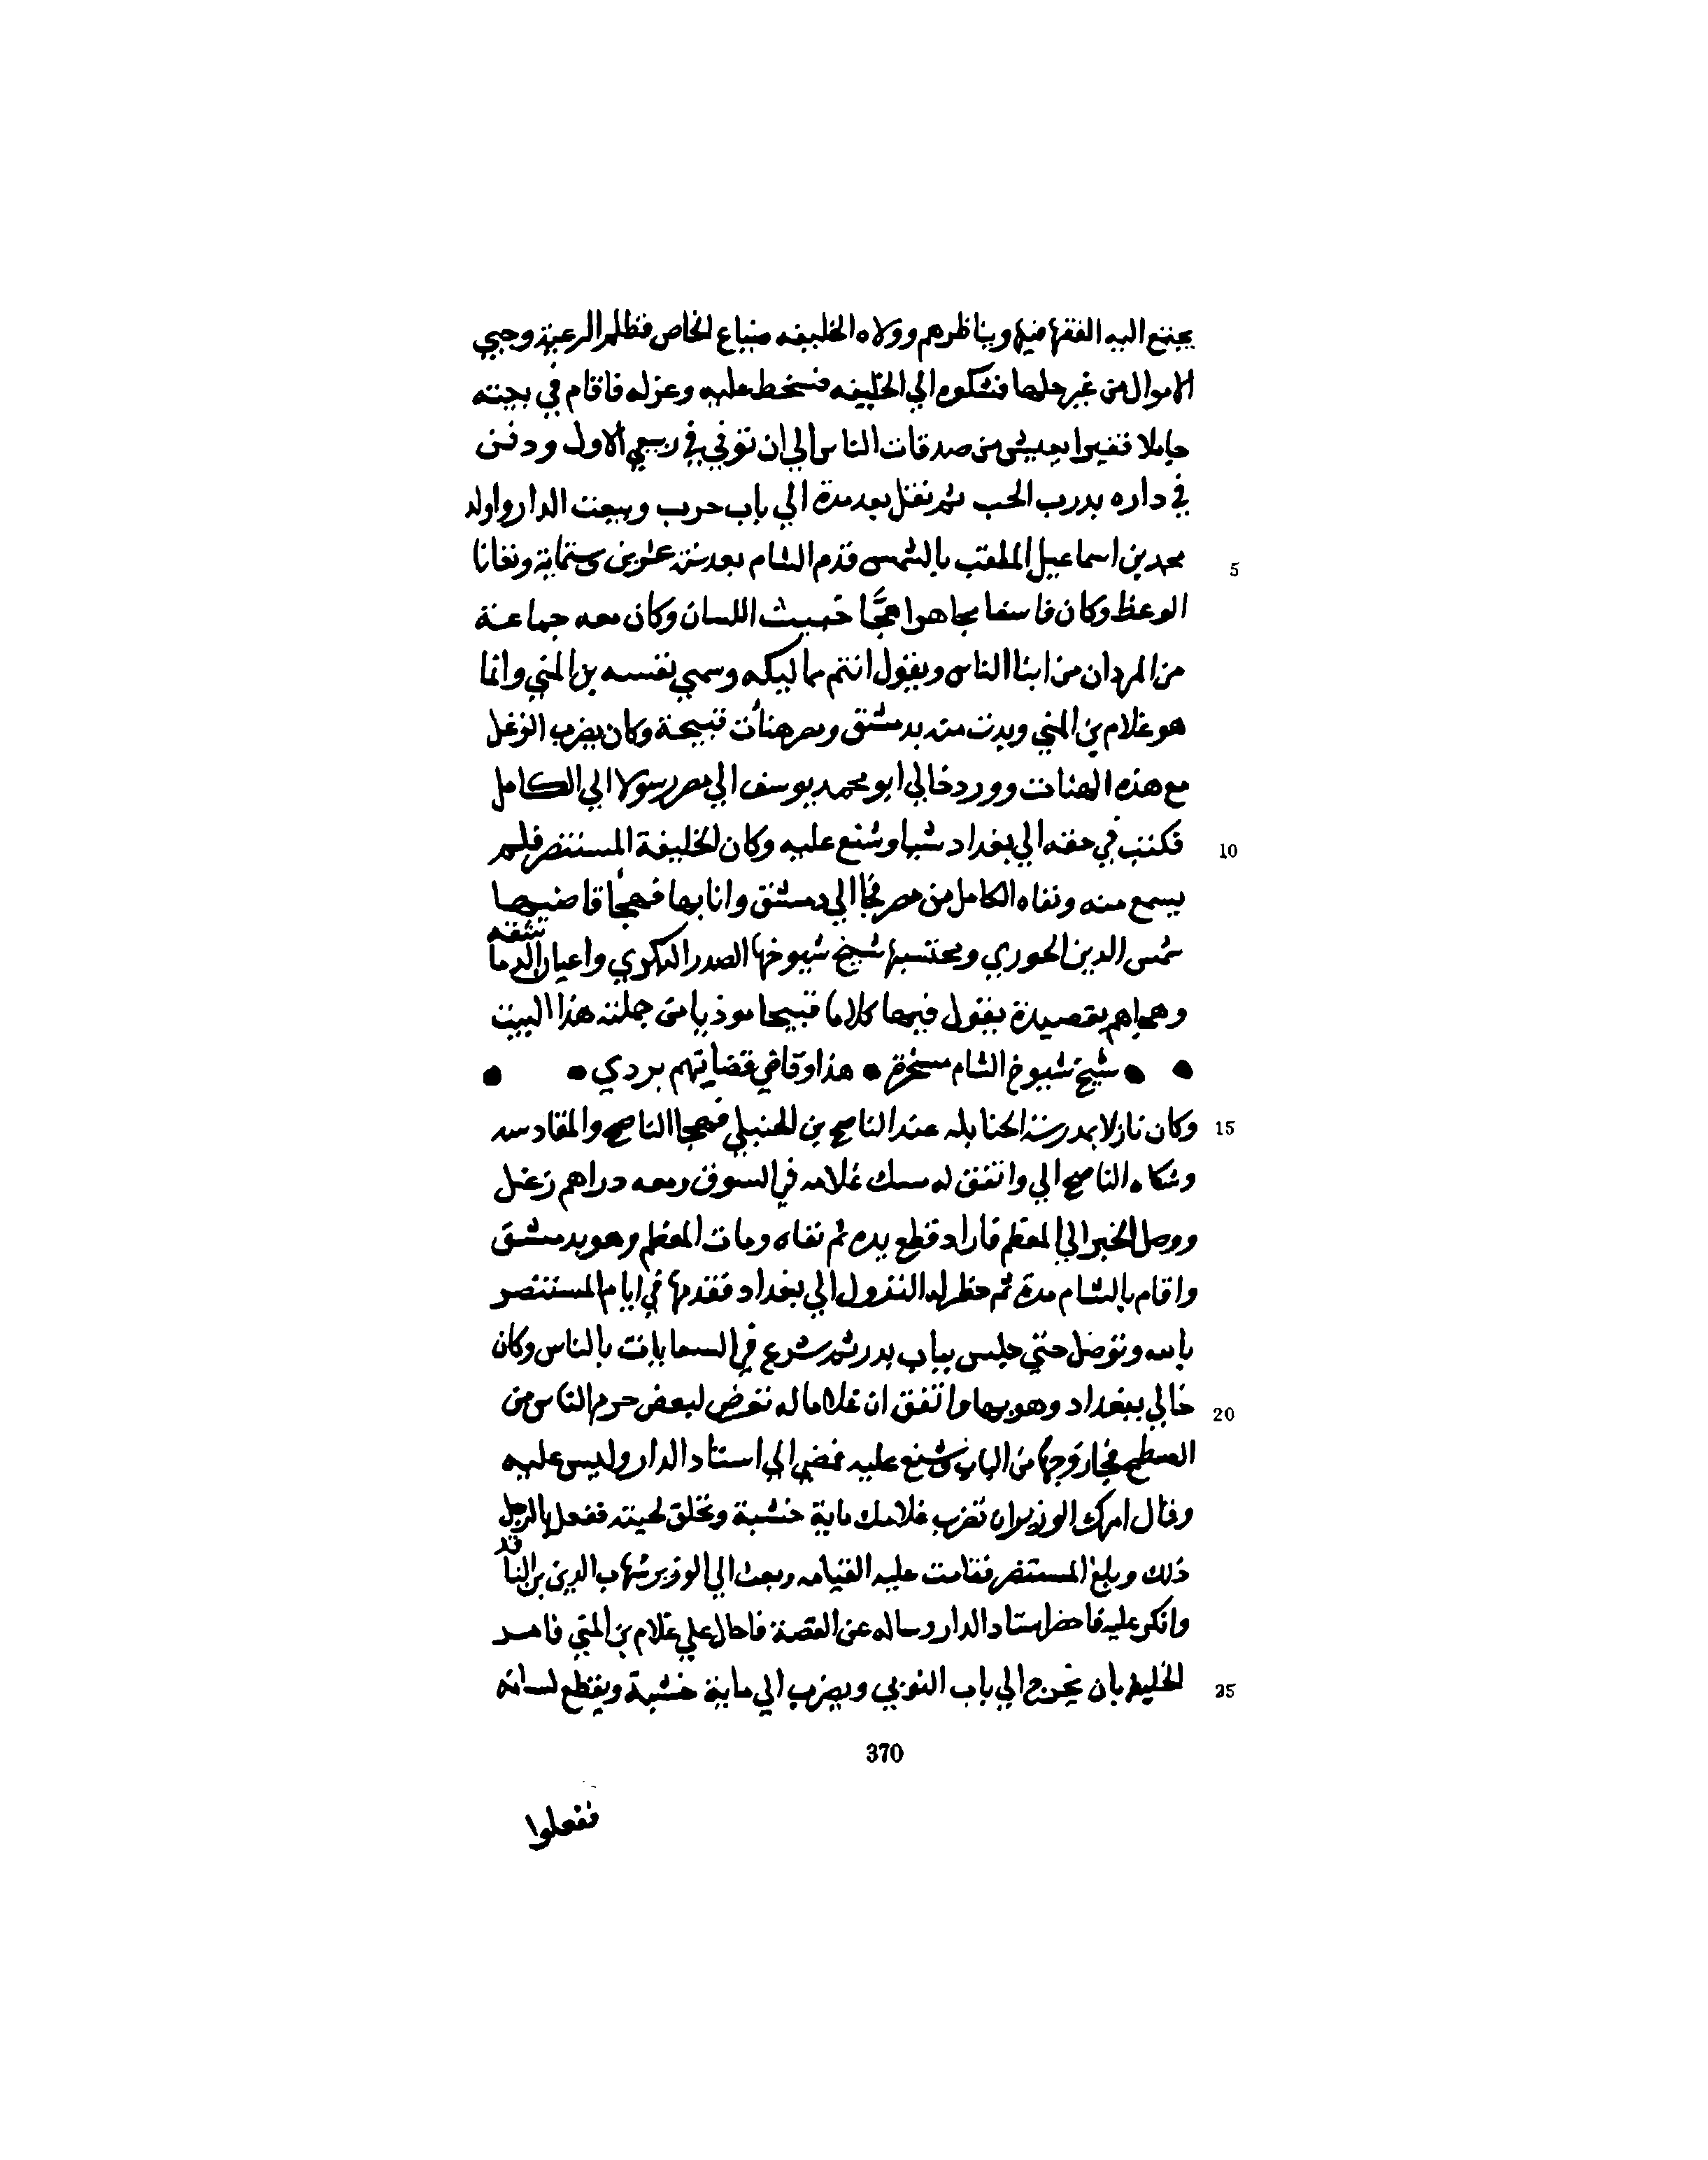 يجتمع اليه الفقها فيها ويناظرهم وولاه الخليفه ضياع الخاص فظلم الرعية وجبي
الاموال من غير حلها فشكوه الي الخليفه فسخط عليه وعزله فاقام في بيته
خاملا فقيرا يعيش من صدقات الناس الي ان توفي في ربيع الاول ودفن
في داره بدرب الحب ثم نقل بعد مدة الي باب حرب وبيعت الدار واولد
محمد بن اسماعيل الملقب بالشمس قدم الشام بعد سنة عشرين وستماية وتعانا
الوعظ وكان فاسقا مجاهرا خبيث اللسان وكان معه جماعة
من المردان من ابنا الناس ويقول انتم مماليكه وسمي نفسه بن المني وانما
هو غلام بن المني وبدت منه بدمشق ومصر هنات قبيحة وكان يضرب الزغل
مع هذه الهنات وورد خالي ابو محمد يوسف الي مصر رسولا الي الكامل
فكتب في حقه الي بغداد شيا وشنع عليه وكان الخليفة المستنصر فلم
يسمع منه ونفاه الكامل من مصر فجا الي دمشق وانا بها فهجا قاضيها
شمس الدين الخوري ومحتسبها شيخ شيوخها الصدر البكري واعيان الدماشقه
وهجاهم بقصيدة يقول فيها كلاما قبيحا موذيا من جملته هذا البيت
شيخ شيوخ الشام مسخرة • هذا وقاضي قضاتهم بردي •
وكان نازلا بمدرسة الحنابله عند الناصح بن الحنبلي فهجا الناصح والمقادسه
وشكاه الناصح الي واتفق له مسك غلامه في السوق ومعه دراهم زغل
ووصل الخبر الي المعظم فاراد قطع يده ثم نفاه ومات المعظم وهو بدمشق
واقام بالشام مدة ثم خطر له النزول الي بغداد فقدمها في ايام المستنصر
بالله وتوصل حتي جلس بباب بدر ثم شرع في السعايات بالناس وكان
خالي ببغداد وهو بها واتفق ان غلاما له تعرض لبعض حرم الناس من
السطح فجا زوجها من الباب وشنع عليه فمضي الي استاد الدار وليس عليه
وقال امرك الوزير ان تضرب غلامك ماية خشبة وتحلق لحيته ففعل بالرجل
ذلك وبلغ المستنصر فقامت عليه القيامه وبعث الي الوزير شهاب الدين بن الناقد
وانكر عليه فاحضر استاد الدار وساله عن القصة فاحال علي غلام بن المني فامر
الخليفه بان يخرج الي باب النوبي ويضرب الي ماية خشبة ويقطع لسانه
5
10
15
20
25
370
ففعلوا